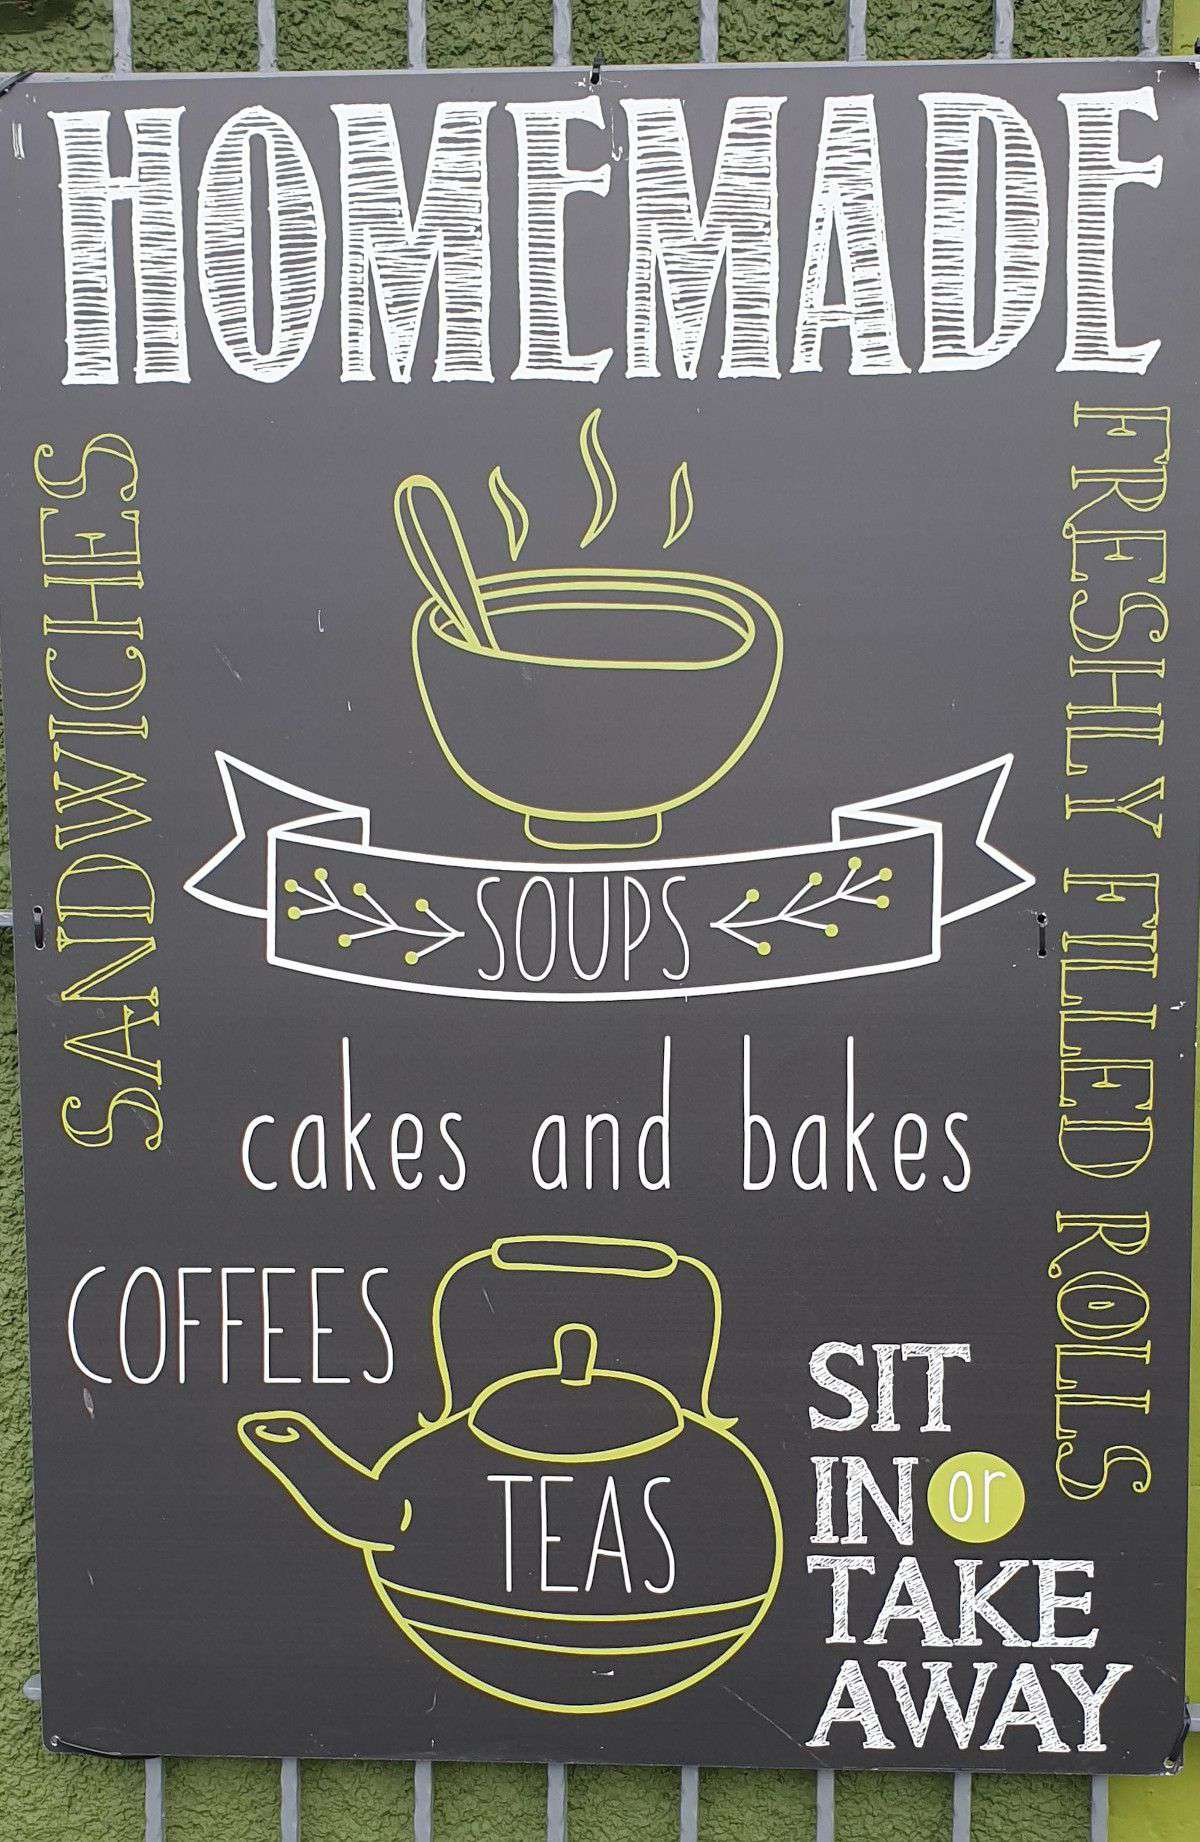 HOMEMADE
SANDWICHES
FRESHLY FILLED ROLLS
SOUPS
cakes and bakes
COFFEES
TEAS
SIT
IN or
TAKE
AWAY